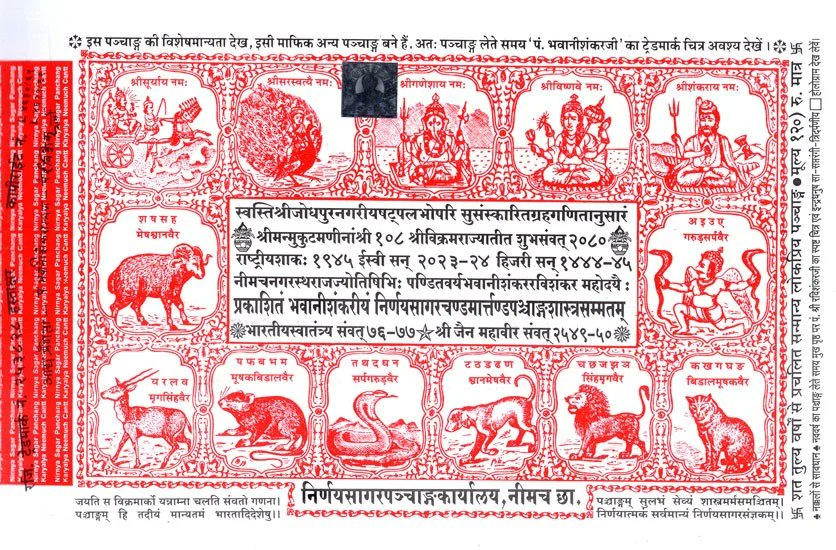 इस पञ्चाङ्ग की विशेषमान्यता देख, इसी माफिक अन्य पञ्चाङ्ग बने हैं. अतः पञ्चाङ्ग लेते समय 'पं. भवानीशंकरजी' का ट्रेडमार्क चित्र अवश्य देखें ।
श्रीसूर्याय नमः
श्रीसरस्वत्यै नमः
श्रीगणेशाय नमः
श्रीविष्णवे नमः
श्रीशंकराय नमः
श ष स ह
मेषश्वानवैर
स्वस्तिश्रीजोधपुरनगरीयषट्पलभोपरि सुसंस्कारितग्रहगणितानुसारं
श्रीमन्मुकुटमणीनांश्री १०८ श्रीविक्रमराज्यातीत शुभसंवत् २०८०
राष्ट्रीयशाकः १९४५ ईस्वी सन् २०२३-२४ हिजरी सन् १४४४-४५
नीमचनगरस्थराजज्योतिषिभिः पण्डितवर्यभवानीशंकररविशंकर महोदयैः
प्रकाशितं भवानीशंकरीयं निर्णयसागरचण्डमार्त्तण्डपञ्चाङ्गशास्त्रसम्मतम्
भारतीयस्वातंत्र्य संवत् ७६-७७ श्री जैन महावीर संवत् २५४९-५०
अ इ उ ए
गरुड़सर्पवैर
य र ल व
मृगसिंहवैर
प फ ब भ म
मूषकबिडालवैर
त थ द ध न
सर्पगरुड़वैर
ट ठ ड ढ ण
श्वानमेषवैर
च छ ज झ ञ
सिंहमृगवैर
क ख ग घ ङ
बिडालमूषकवैर
निर्णयसागरपञ्चाङ्गकार्यालय, नीमच छा.
जयति स विक्रमार्को यन्नाम्ना चलति संवतो गणना।
पञ्चाङ्गम् हि तदीयं मान्यतमं भारतादिदेशेषु।।
पञ्चाङ्गम् सुलभं सेव्यं शास्त्रमर्मसमञ्चितम्।
निर्णयात्मकं सर्वमान्यं निर्णयसागरसंज्ञकम्।।
शत तुल्य वर्षों से प्रचलित सन्मान्य लोकप्रिय पञ्चाङ्ग ● मूल्य १२०) रु. मात्र
Nirnya Sagar Panchang
Karyalya Neemuch Cantt